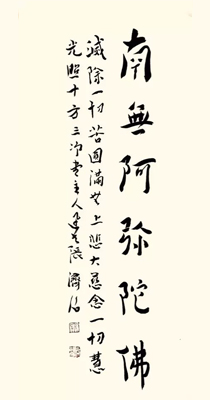 南無阿弥陀佛
滅除一切苦圓滿無上悲大慈念一切慧
光照十方三净堂主人張濟